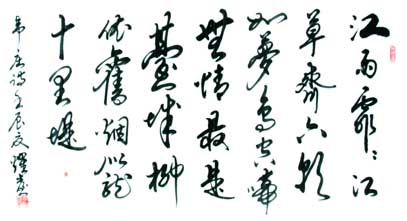 江雨霏〻江
草齊六朝
如夢鳥空啼
無情最是
臺城柳
依舊烟籠
十里堤
韦庄诗壬辰夏